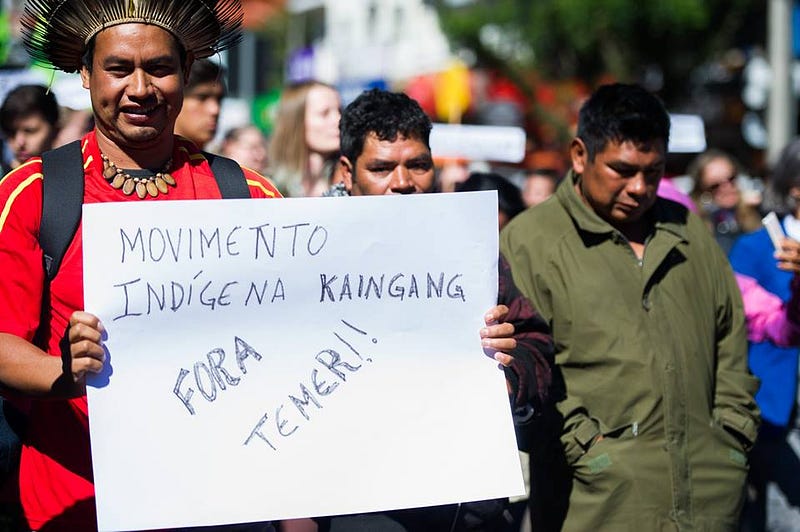 MOVIMENTO
INDÍGENA KAINGANG
FORA
TEMER!!